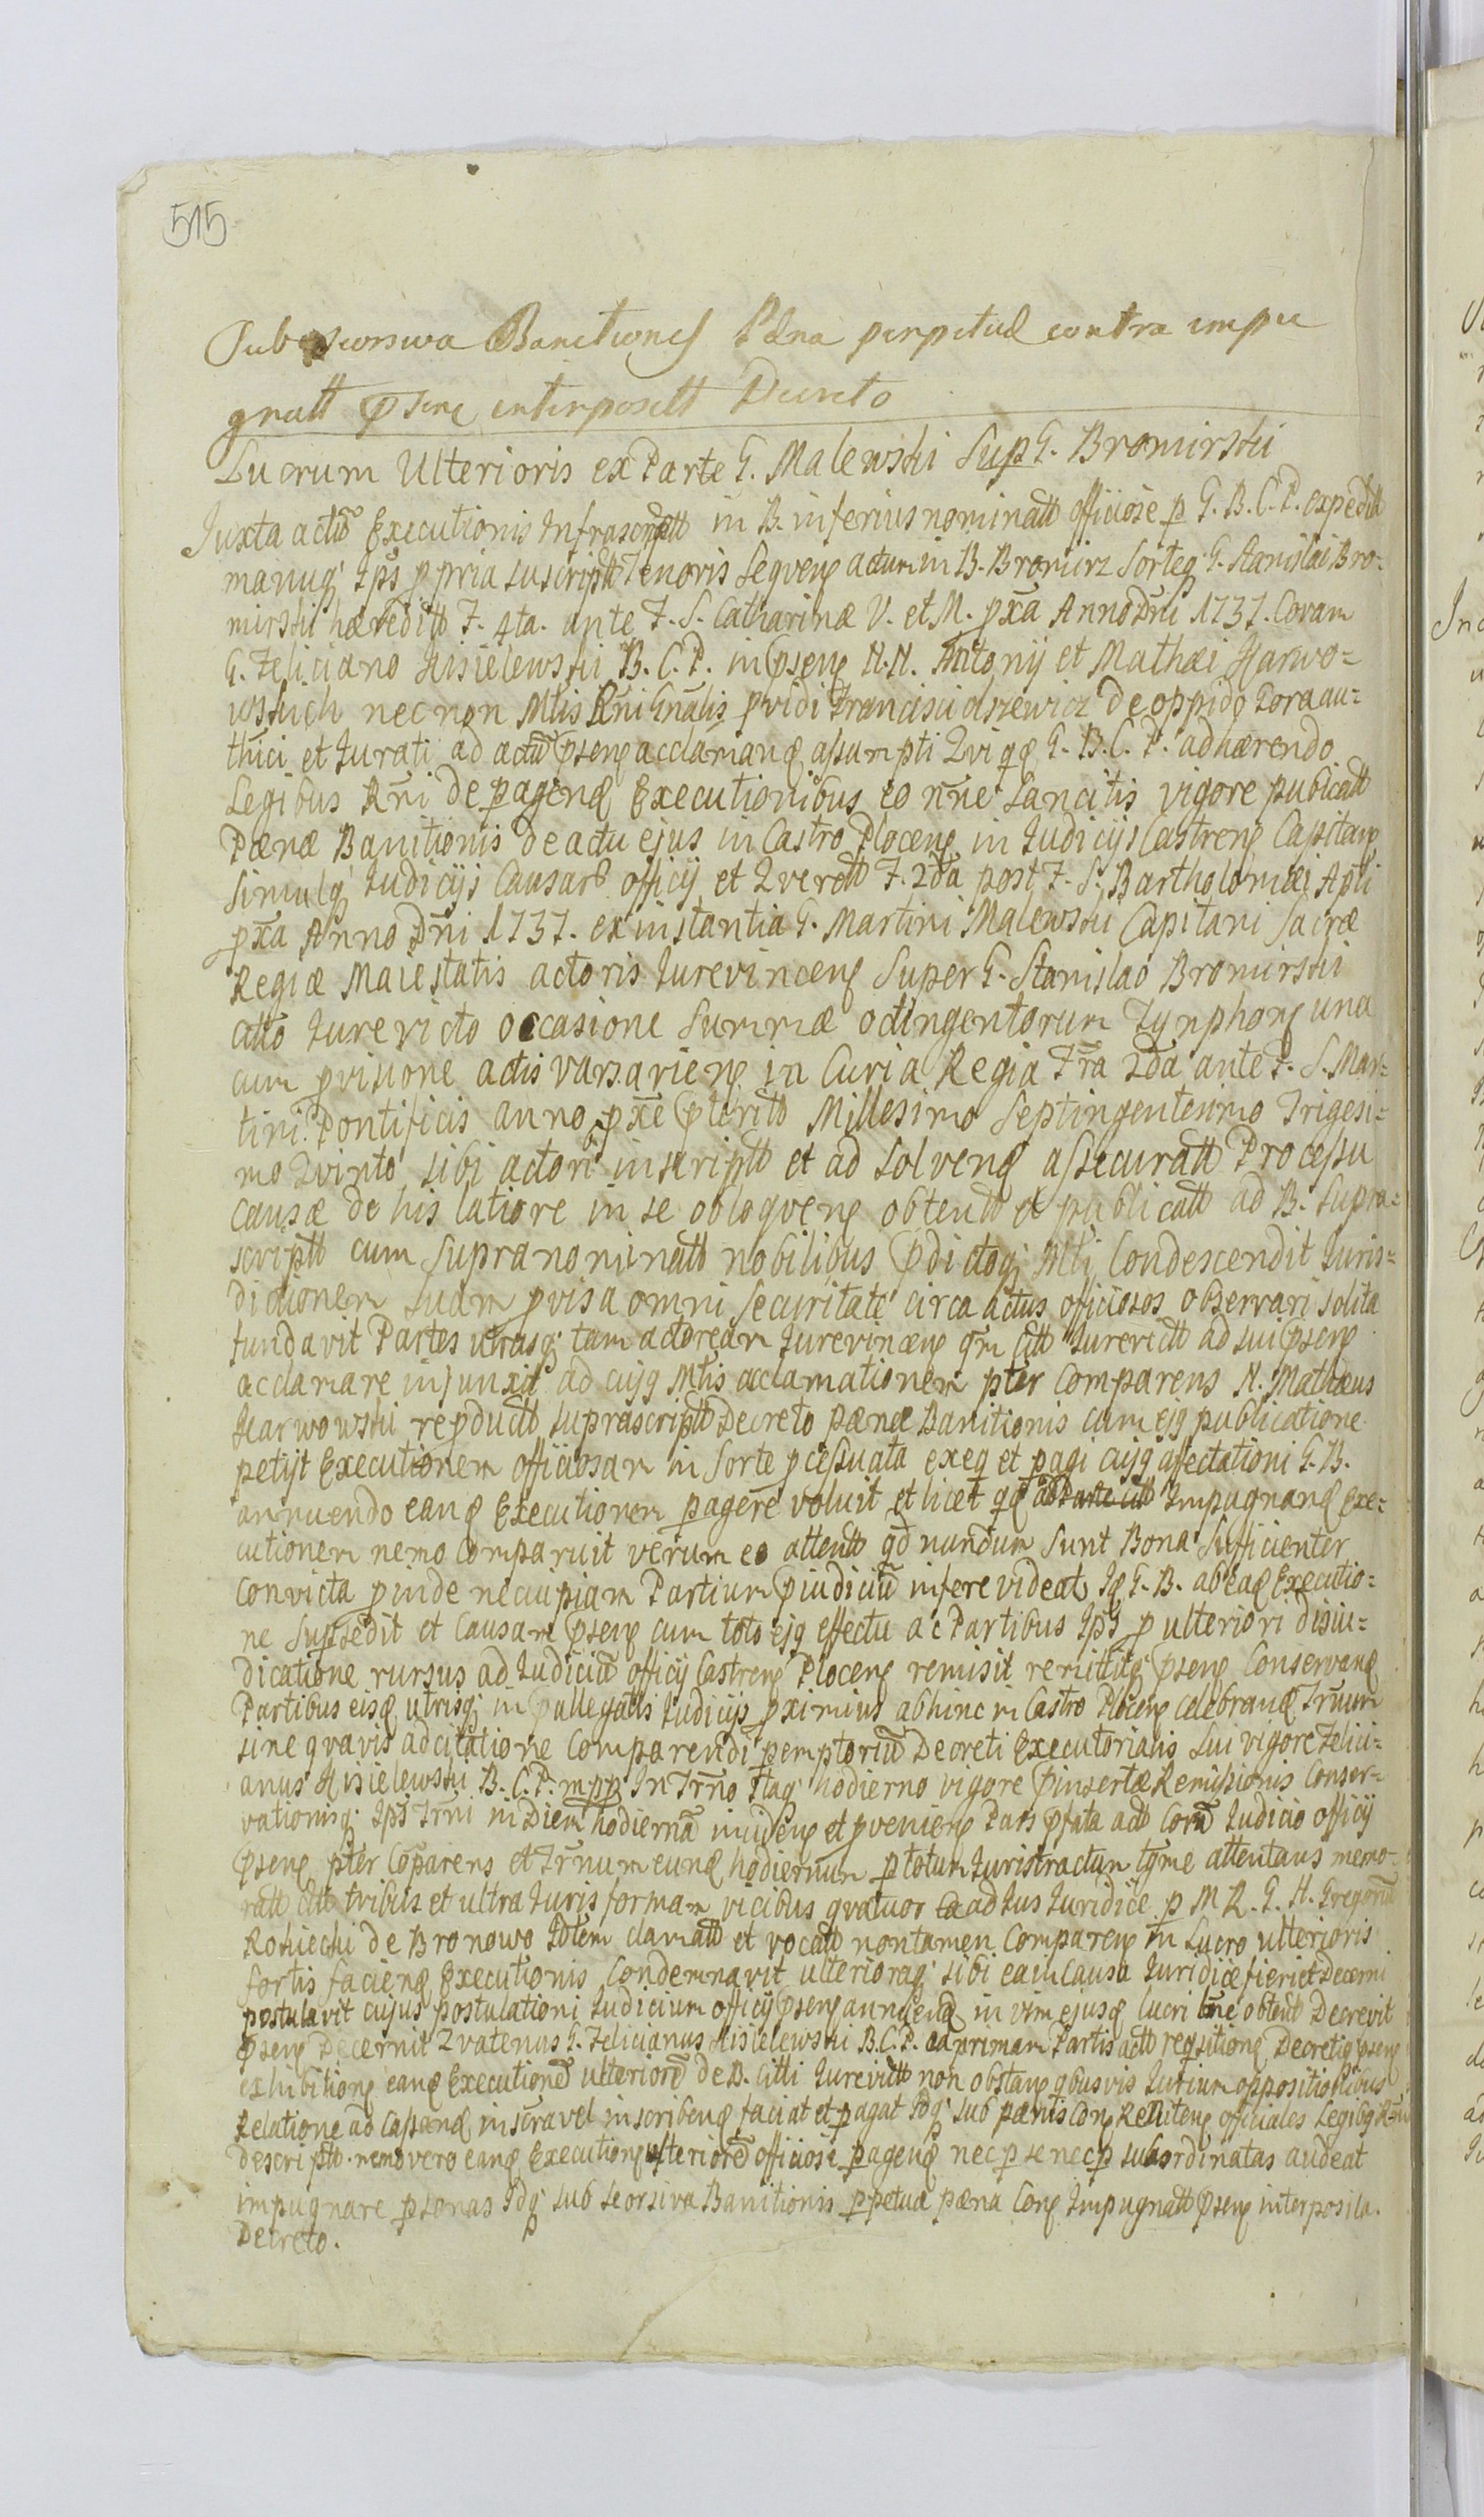 515
Sub seorsiva Banitionis Pæna perpetua contra impu
gnatt Psene interposett Decreto
Lucrum Ulterioris ex Parte G. Malewski Sup G. Bromirski
Juxta actū Executionis Infrascriptt in B. inferius nominatt officiose p G. B. C. P. expeditt
manuq; Ips ppria suscriptt Tenoris Sequens actum in B. Bromirz Sorteq G. Stanislai Bro-
mirski hæreditt F. 4ta. ante F. S. Catharinæ V. et M. pxa Anno Dni 1737. Coram
G. Feliciano Kisielewski B. C. P. in Psens N.N. Antonij et Mathæi Karwo=
wskich nec non Mtis Rni Gnalis pvidi Francisci de oppido Zora au=
thci et Jurati ad actū Psens acclamand assumpti Qui qd G. B. C. P. adhærendo
Legibus Rni de pagend Executionibus eo nne Sancitis vigore publicatt
Pænæ Banitionis de actu ejus in Castro Plocens in Judicijs Castrens Capitan
Simulq; Judicijs Causarō officij et Querett F. 2da post F. S. Bartholomæi Apli
pxa Anno Dni 1737. ex instantia G. Martini Malewski Capitani Sacræ
Regiæ Maiestatis actoris Jurevincens Super G. Stanislao Bromirski
citto Jurevicto occasione Summæ octingentorum Tynphons una
cum pvisione actis Varsaviens in Curia Regia Fra 2da ante F. S. Mar=
tini Pontificis anno pxe Pteritt Millesimo Septingentesimo Trigesi=
mo Qvinto sibi actori inscriptt et ad Solvend assecuratt Processu
Causæ de his latiore in se obloquens obtentt et publicatt ad B. Supra=
scriptt cum Supranominatt nobilibus Pdictoq; Mtli Condescendit Juris=
dictionem Suam pvisa omni Securitate circa actus officiosos observari solita
fundavit Partes utrasq; tam actoream Jurevincens qm citt Jurevictt ad sui Psens
acclamare injunxit ad cujq Mtis acclamationem pter Comparens N. Mathæus
Karwowski repductt suprascriptt Decreto pænæ Banitionis cum ejq publicatione
petijt Executionem officiosam in Sorte pcessuata exeq et pagi cujq affectationi G. B.
annuendo eand Executionem pagere voluit et licet qd ab Parte citt Impugnand Exe=
cutionem nemo Comparuit verum eo attentt qd nundum Sunt Bona Sufficienter
convicta pinde ne cuipiam Partium Piudiciū infere videat Iq G. B. ab ead Executio=
ne Supsedit et Causam Psens cum toto ejq effectu ac Partibus Ips p ulteriori disiu=
dicatione rursus ad Judiciū officij Castrens Plocens remisit remittitq; Psens Conservand
Partibus eisd utrisq; in Pallegatis Judicijs pximius abhinc in Castro Plocens celebrand Trnum
sine quavis adcitatione Comparendi pemptoriū Decreti Executorialis Sui vigore Felici=
anus Kisielewski B. C. P. mpp In Trno Itaq; hodierno vigore Pinsertæ Remissionis Conser-
vationisq; Ips Trni in Diem hodiernā incidens et pveniens Pars Pfata actt Corā Judicio officij
Psens pter Coparens et Trnum eund hodiernum p totum Juristractum tgme attentans memo-
ratt Citt tribus et ultra Juris formam vicibus quatuor ad Jus Juridice p M R. G. H. Gregoriū
Rokicki de Bronowo Idtem clamatt et vocatt non tamen Comparens in Lucro ulterioris
fortis faciend Executionis Condemnavit ulterioraq; sibi eam Causa Juridice fieri et Decerni
postulavit cujus postulationi Judicium officij Psens annuend in vim ejusd lucri tme obtentt Decrevit
Psens Decernit Quatenus G. Felicianus Kisielewski B. C. P. ad primam Partis actt reqsitione Decretiq psens
exhibitione eand Executionē ulteriorē de B. Citti Jurevictt non obstans qbusvis Jurium oppositionibus
Relatione ad Capsand inscra vel inscribend faciat et pagat Idq; sub pænis Con Renitens officiales Legibq Rni
descriptt. nemo vero eand Executione ulteriorē officiose pagend nec p se nec p subordinatas audeat
impugnare psonas Idq; sub seorsiva Banitionis ppetuæ pæna Con Impugnatt Psens interposita.
Decreto.